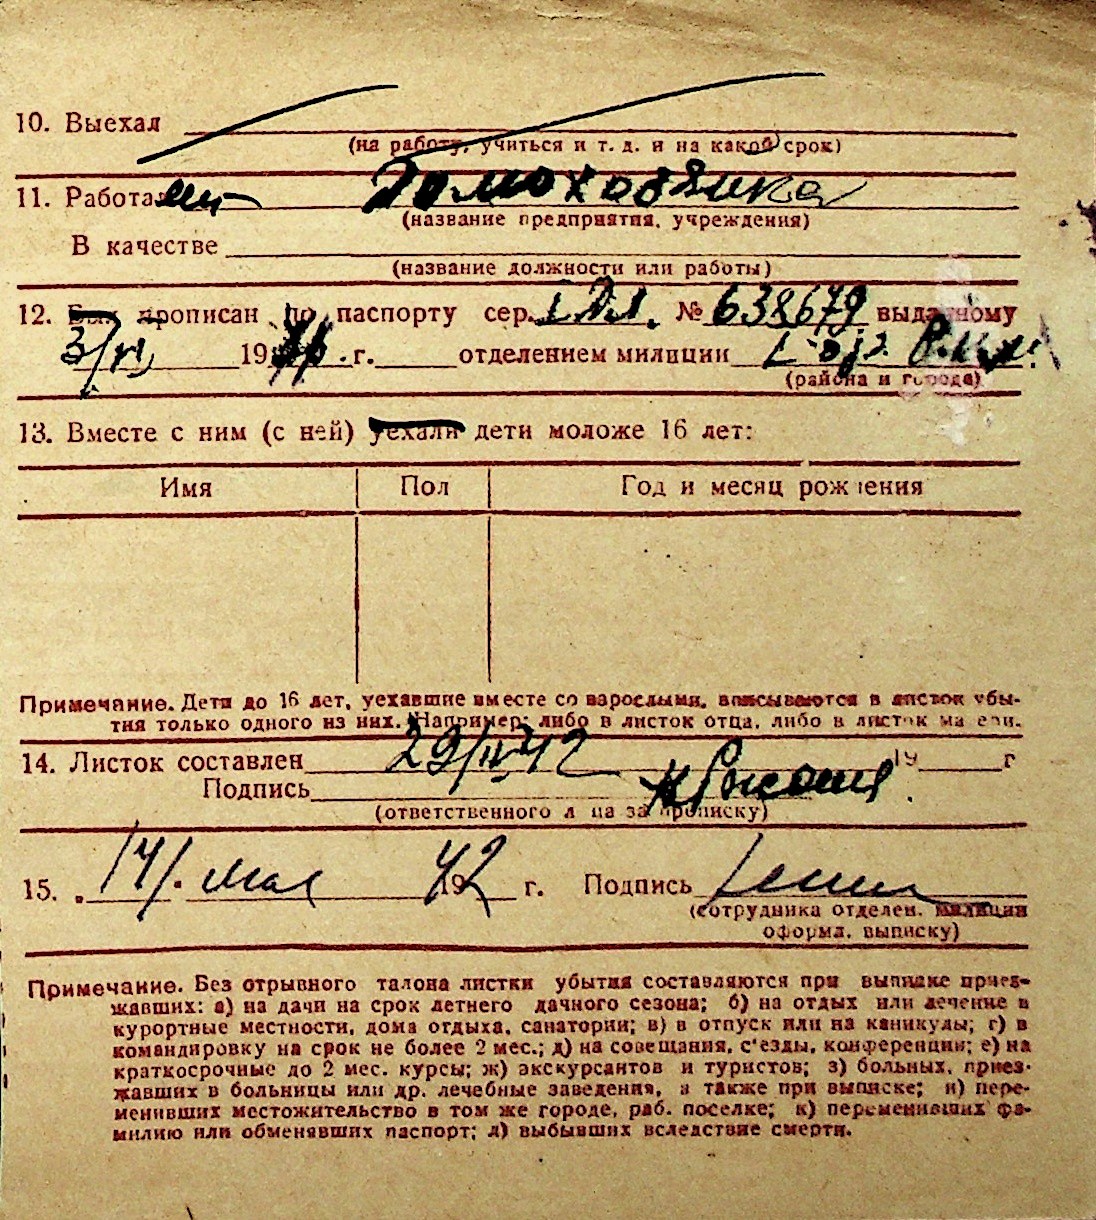 10. Выехал
(на работу, учиться и т. д. и на какой срок)
11. Работал Домохозяйка
(название предприятия, учреждения)
В качестве
(название должности или работы)
12. Был прописан по паспорту сер. № 638679 выданному
3/VI 19 г. отделением милиции
(района и города)
13. Вместе с ним (с ней) уехали дети моложе 16 лет:
Имя Пол Год и месяц рождения
Примечание. Дети до 16 лет, уехавшие вместе со взрослыми, вписываются в листок убы-
тия только одного из них. Например: либо в листок отца, либо в листок матери.
14. Листок составлен 29/IV 42 19 г
Подпись
(ответственного лица за прописку)
15. „ 14 " мая 1942 г. Подпись
(сотрудника отделен. милиции
оформл. выписку)
Примечание. Без отрывного талона листки убытия составляются при выписке приез-
жавших: а) на дачи на срок летнего дачного сезона; б) на отдых или лечение в
курортные местности, дома отдыха, санатории; в) в отпуск или на каникулы; г) в
командировку на срок не более 2 мес.; д) на совещания, с'езды, конференции; е) на
краткосрочные до 2 мес. курсы; ж) экскурсантов и туристов; з) больных, приез-
жавших в больницы или др. лечебные заведения, а также при выписке; и) пере-
менивших местожительство в том же городе, раб. поселке; к) переменивших фа-
милию или обменявших паспорт; л) выбывших вследствие смерти.